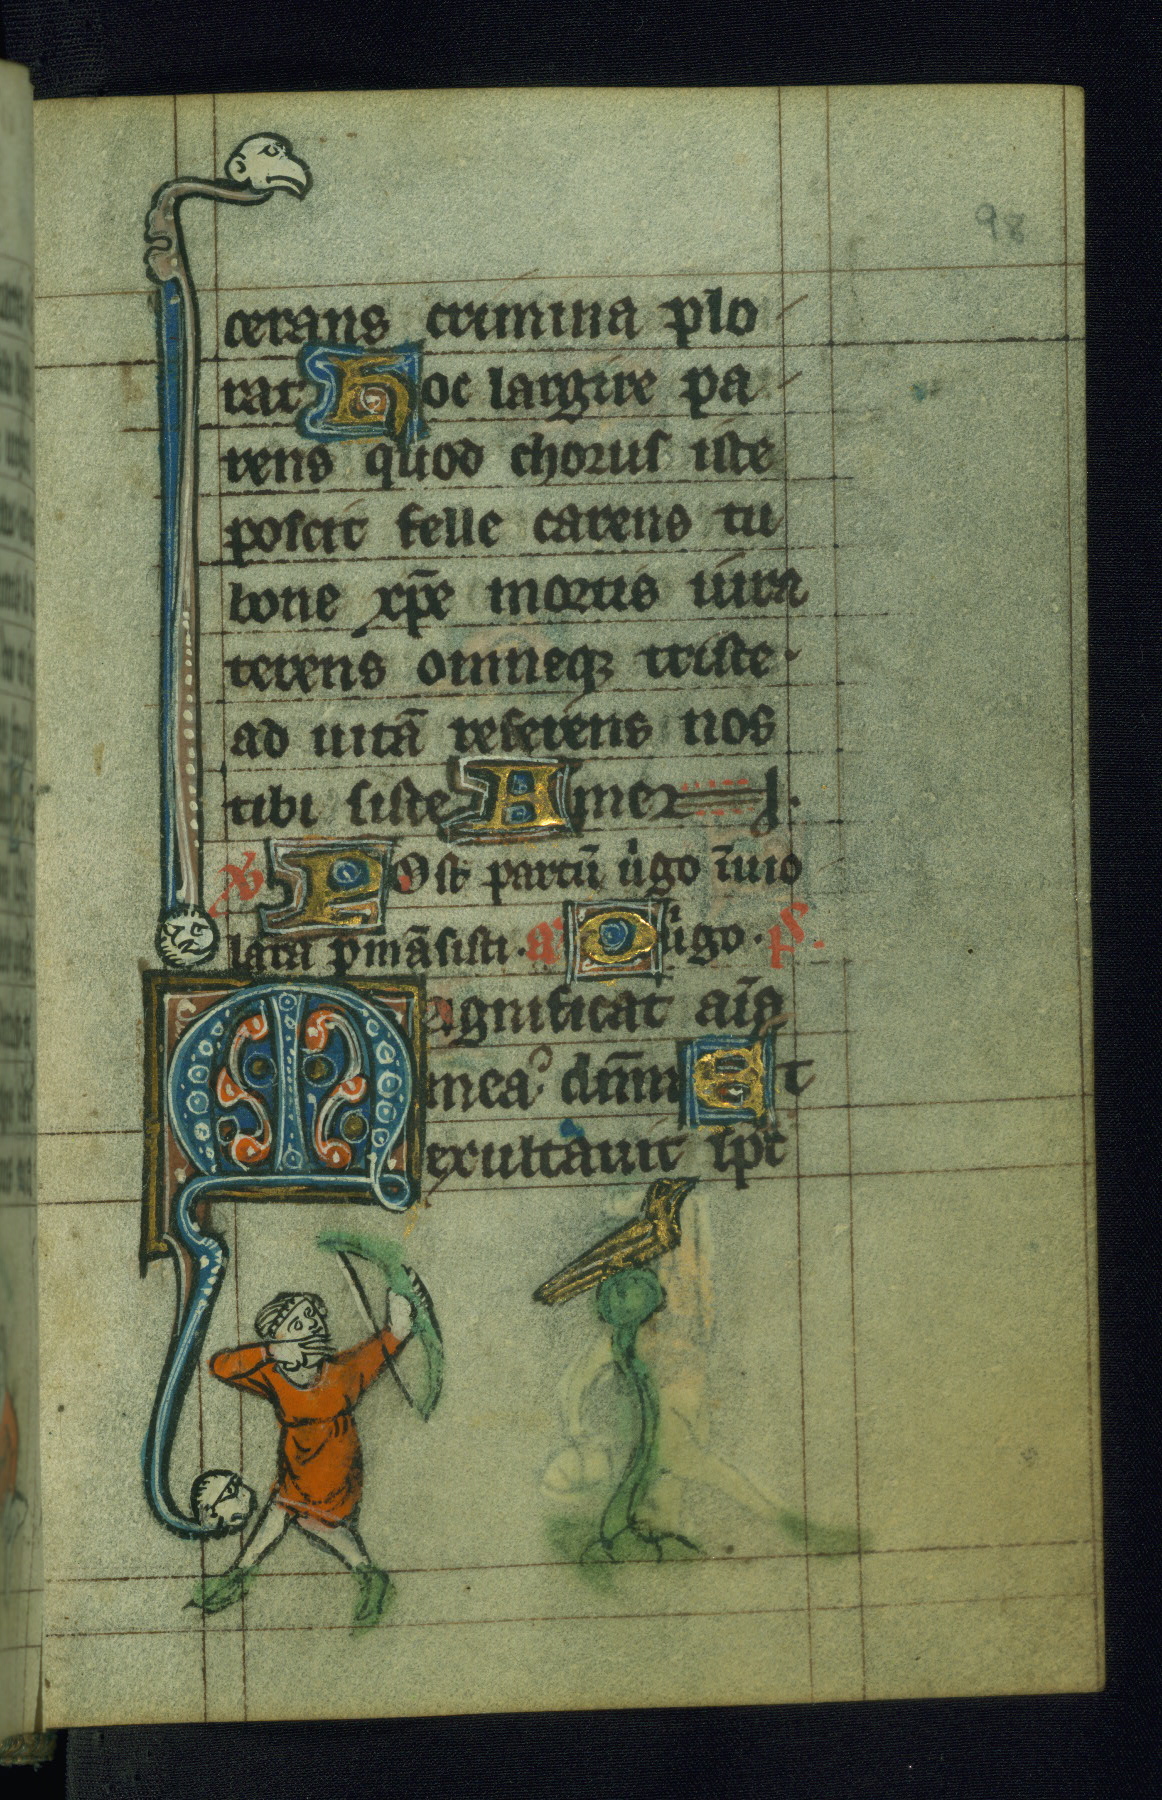 98
cerans crimina plo
rat Hoc largire pa
rens quod chorus iste
poscit felle carens tu
bone xp̄e mortis uira
terens omneqꝫ triste·
ad uitā referens nos
tibi siste Amen·
℣ POst partū uͥgo īuio
lata pmāsisti· a O uͥgo· ps.
Magnificat aīa
mea dn̄m Et
exultauit spc